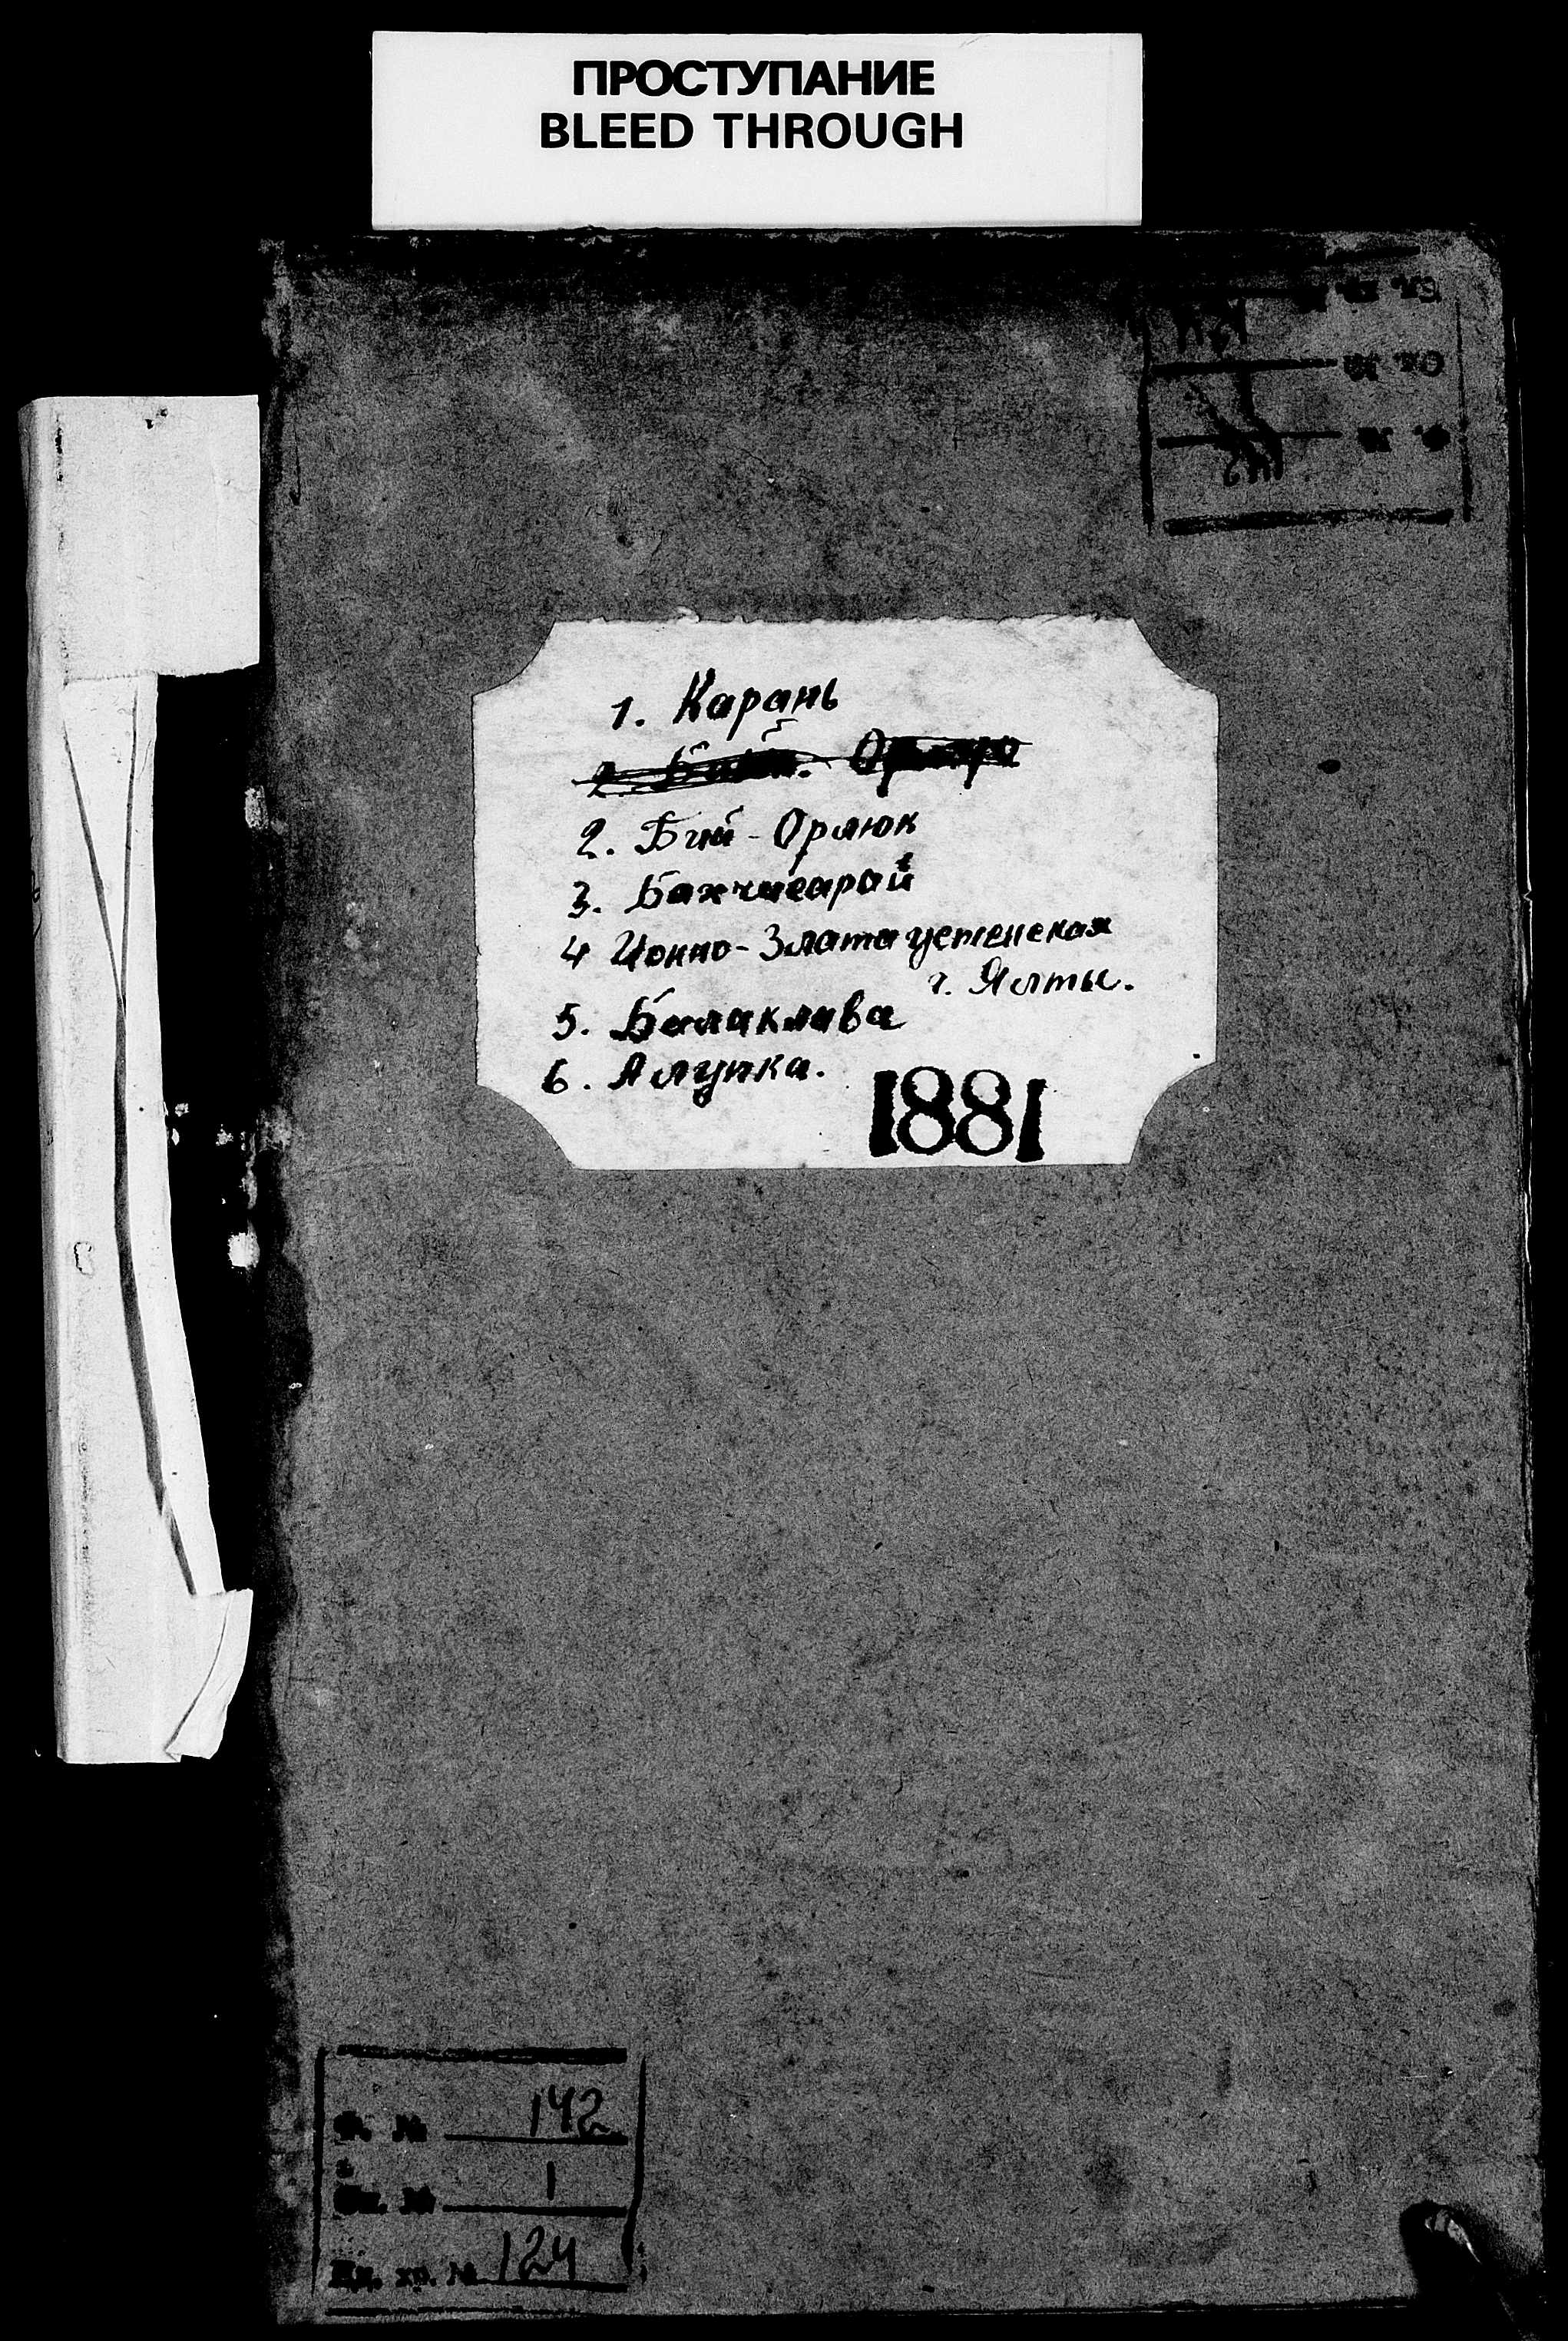 ПРОСТУПАНИЕ
BLEED THROUGH
1. Карань
2.
2. Бий-Орлюк
3. Бахчисарай
4 Ионно-Златаустенская
г. Ялты.
5. Балаклава
6. Алупка.
1881
Ф. № 142
Оп. № 1
Ед. хр. № 124